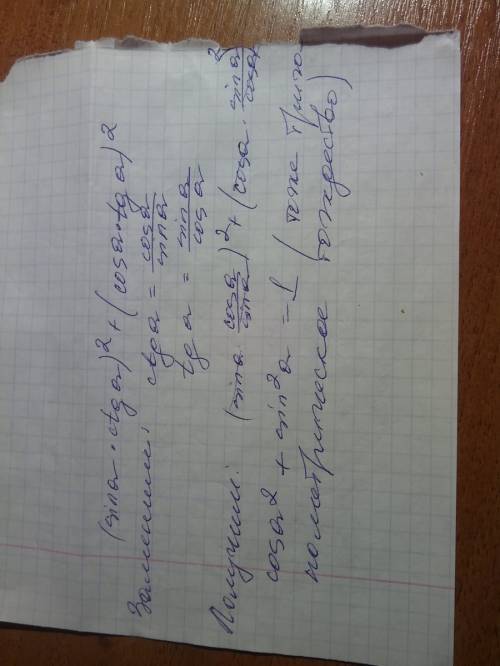 (sina · ctg a)² + (cosa · tg a)²
Заменим: ctga = cosa/sina
tg a = sina/cosa
Получим: (sina · cosa/sina)² + (cosa · sina/cosa)²
cosa² + sin²a = 1 (тоже триго-
нометрическое тождество)